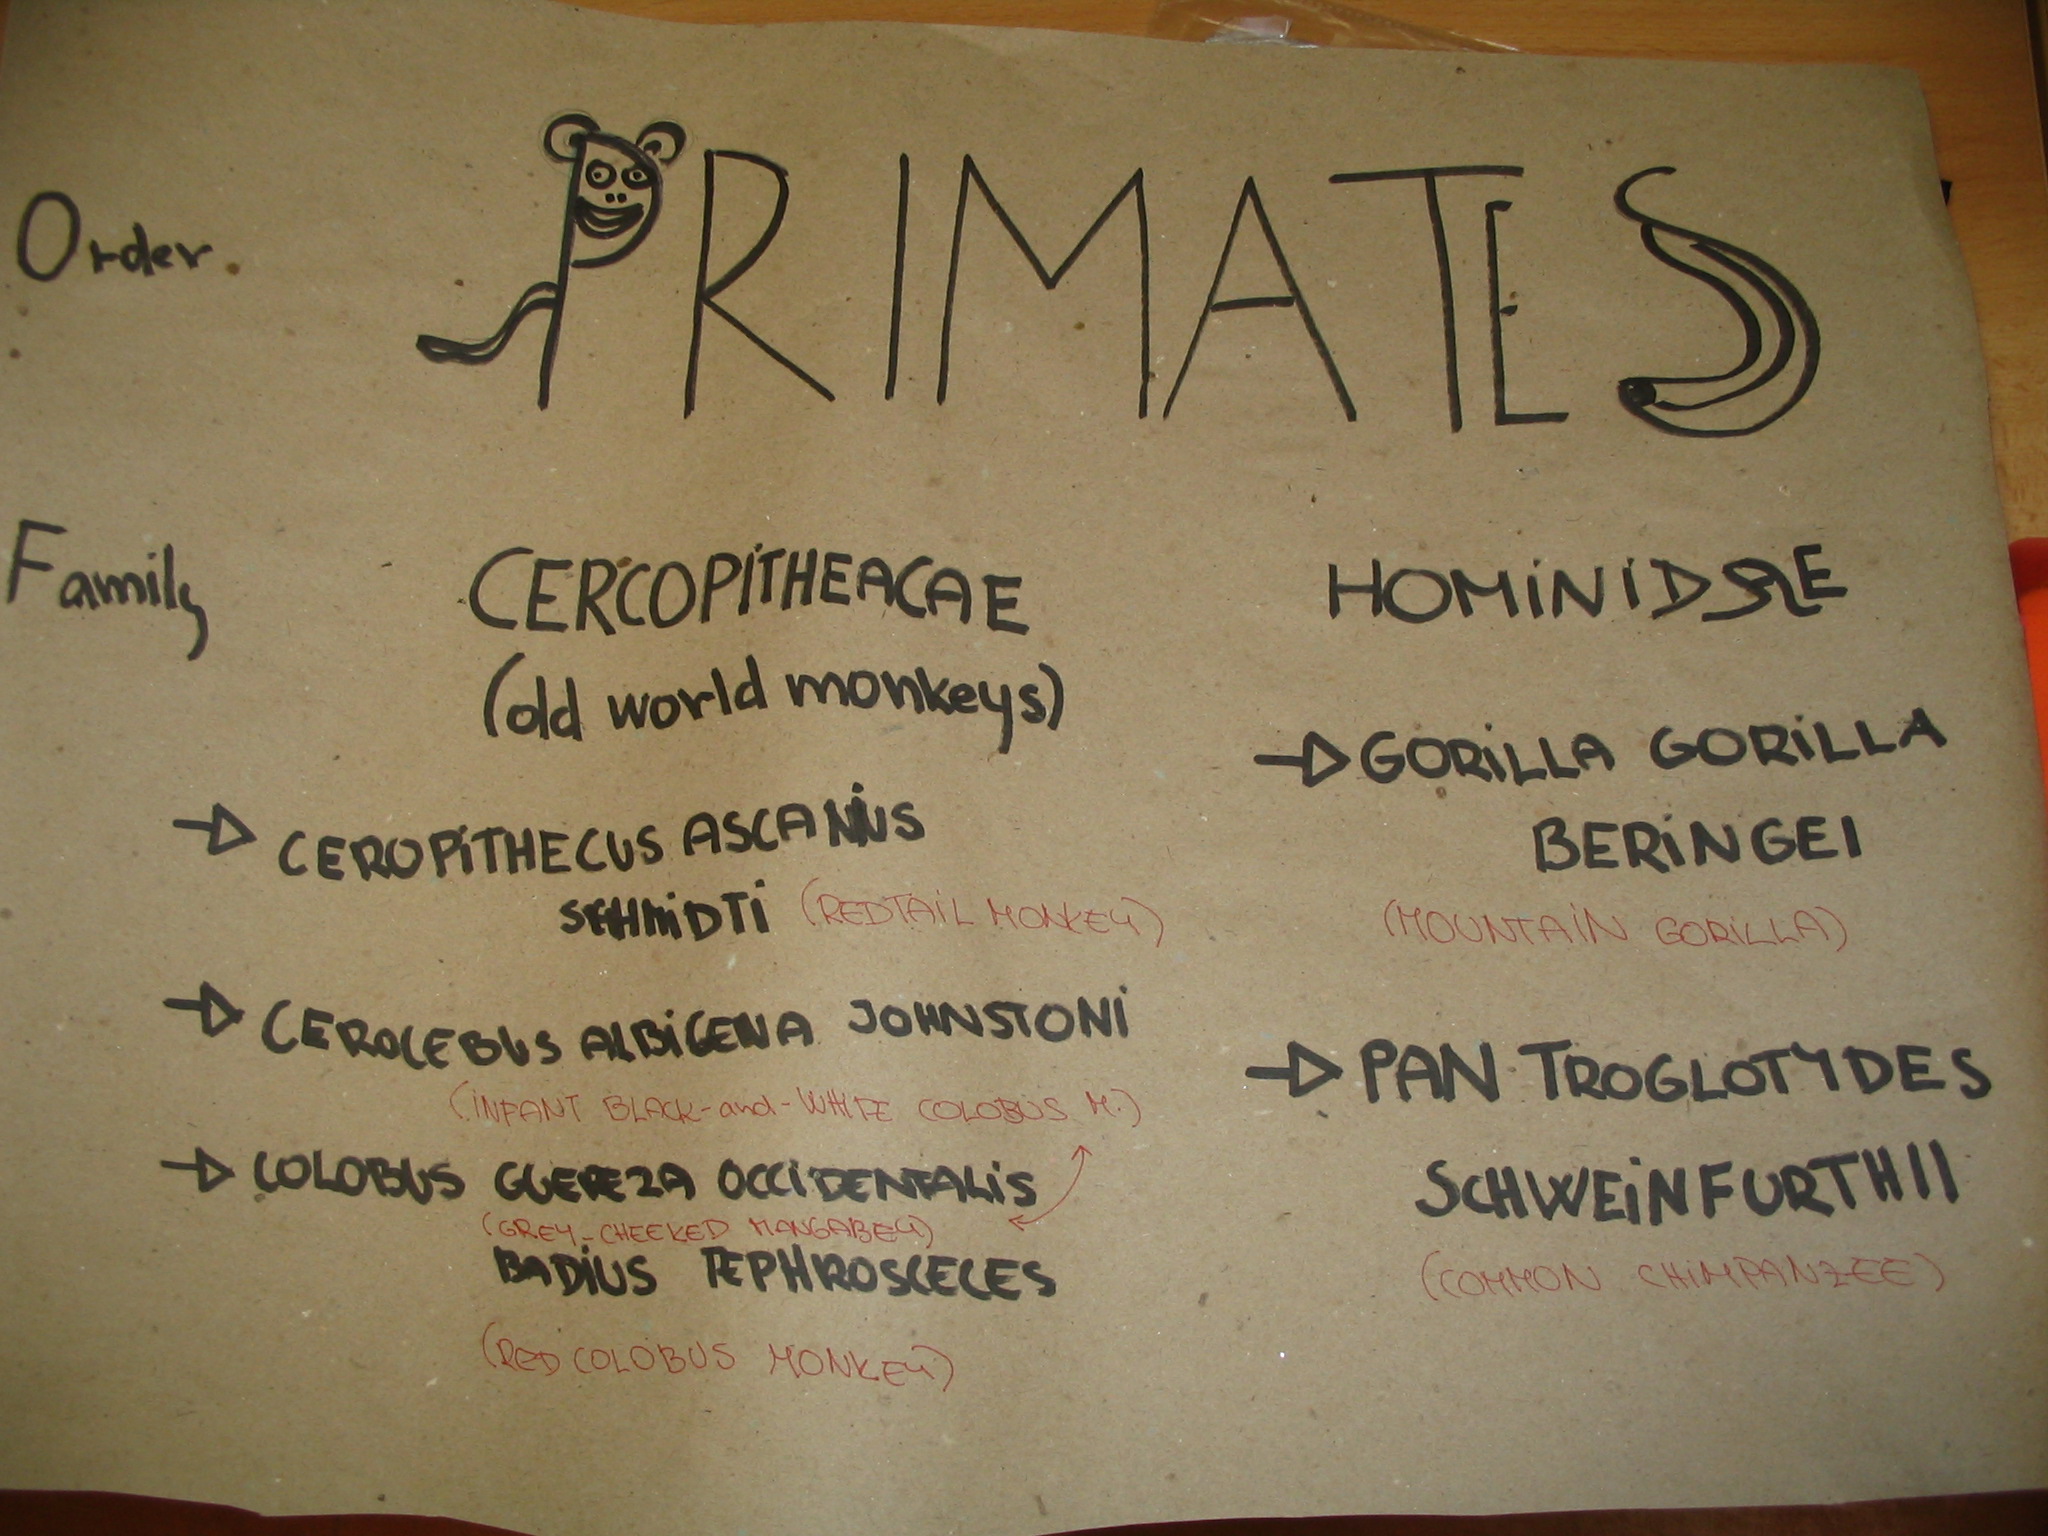 Order
PRIMATES
Family
CERCOPITHEACAE
(old world monkeys)
CEROPITHECUS ASCANIUS
SCHMIDTI (REDTAIL MONKEY)
CEROCEBUS ALBIGENA JOHNSTONI
(INFANT BLACK-and-WHITE COLOBUS M.)
COLOBUS GUEREZA OCCIDENTALIS
(GREY-CHEEKED MANGABEY)
BADIUS TEPHROSCECES
(RED COLOBUS MONKEY)
HOMINIDAE
GORILLA GORILLA
BERINGEI
(MOUNTAIN GORILLA)
PAN TROGLOTYDES
SCHWEINFURTHII
(COMMON CHIMPANZEE)